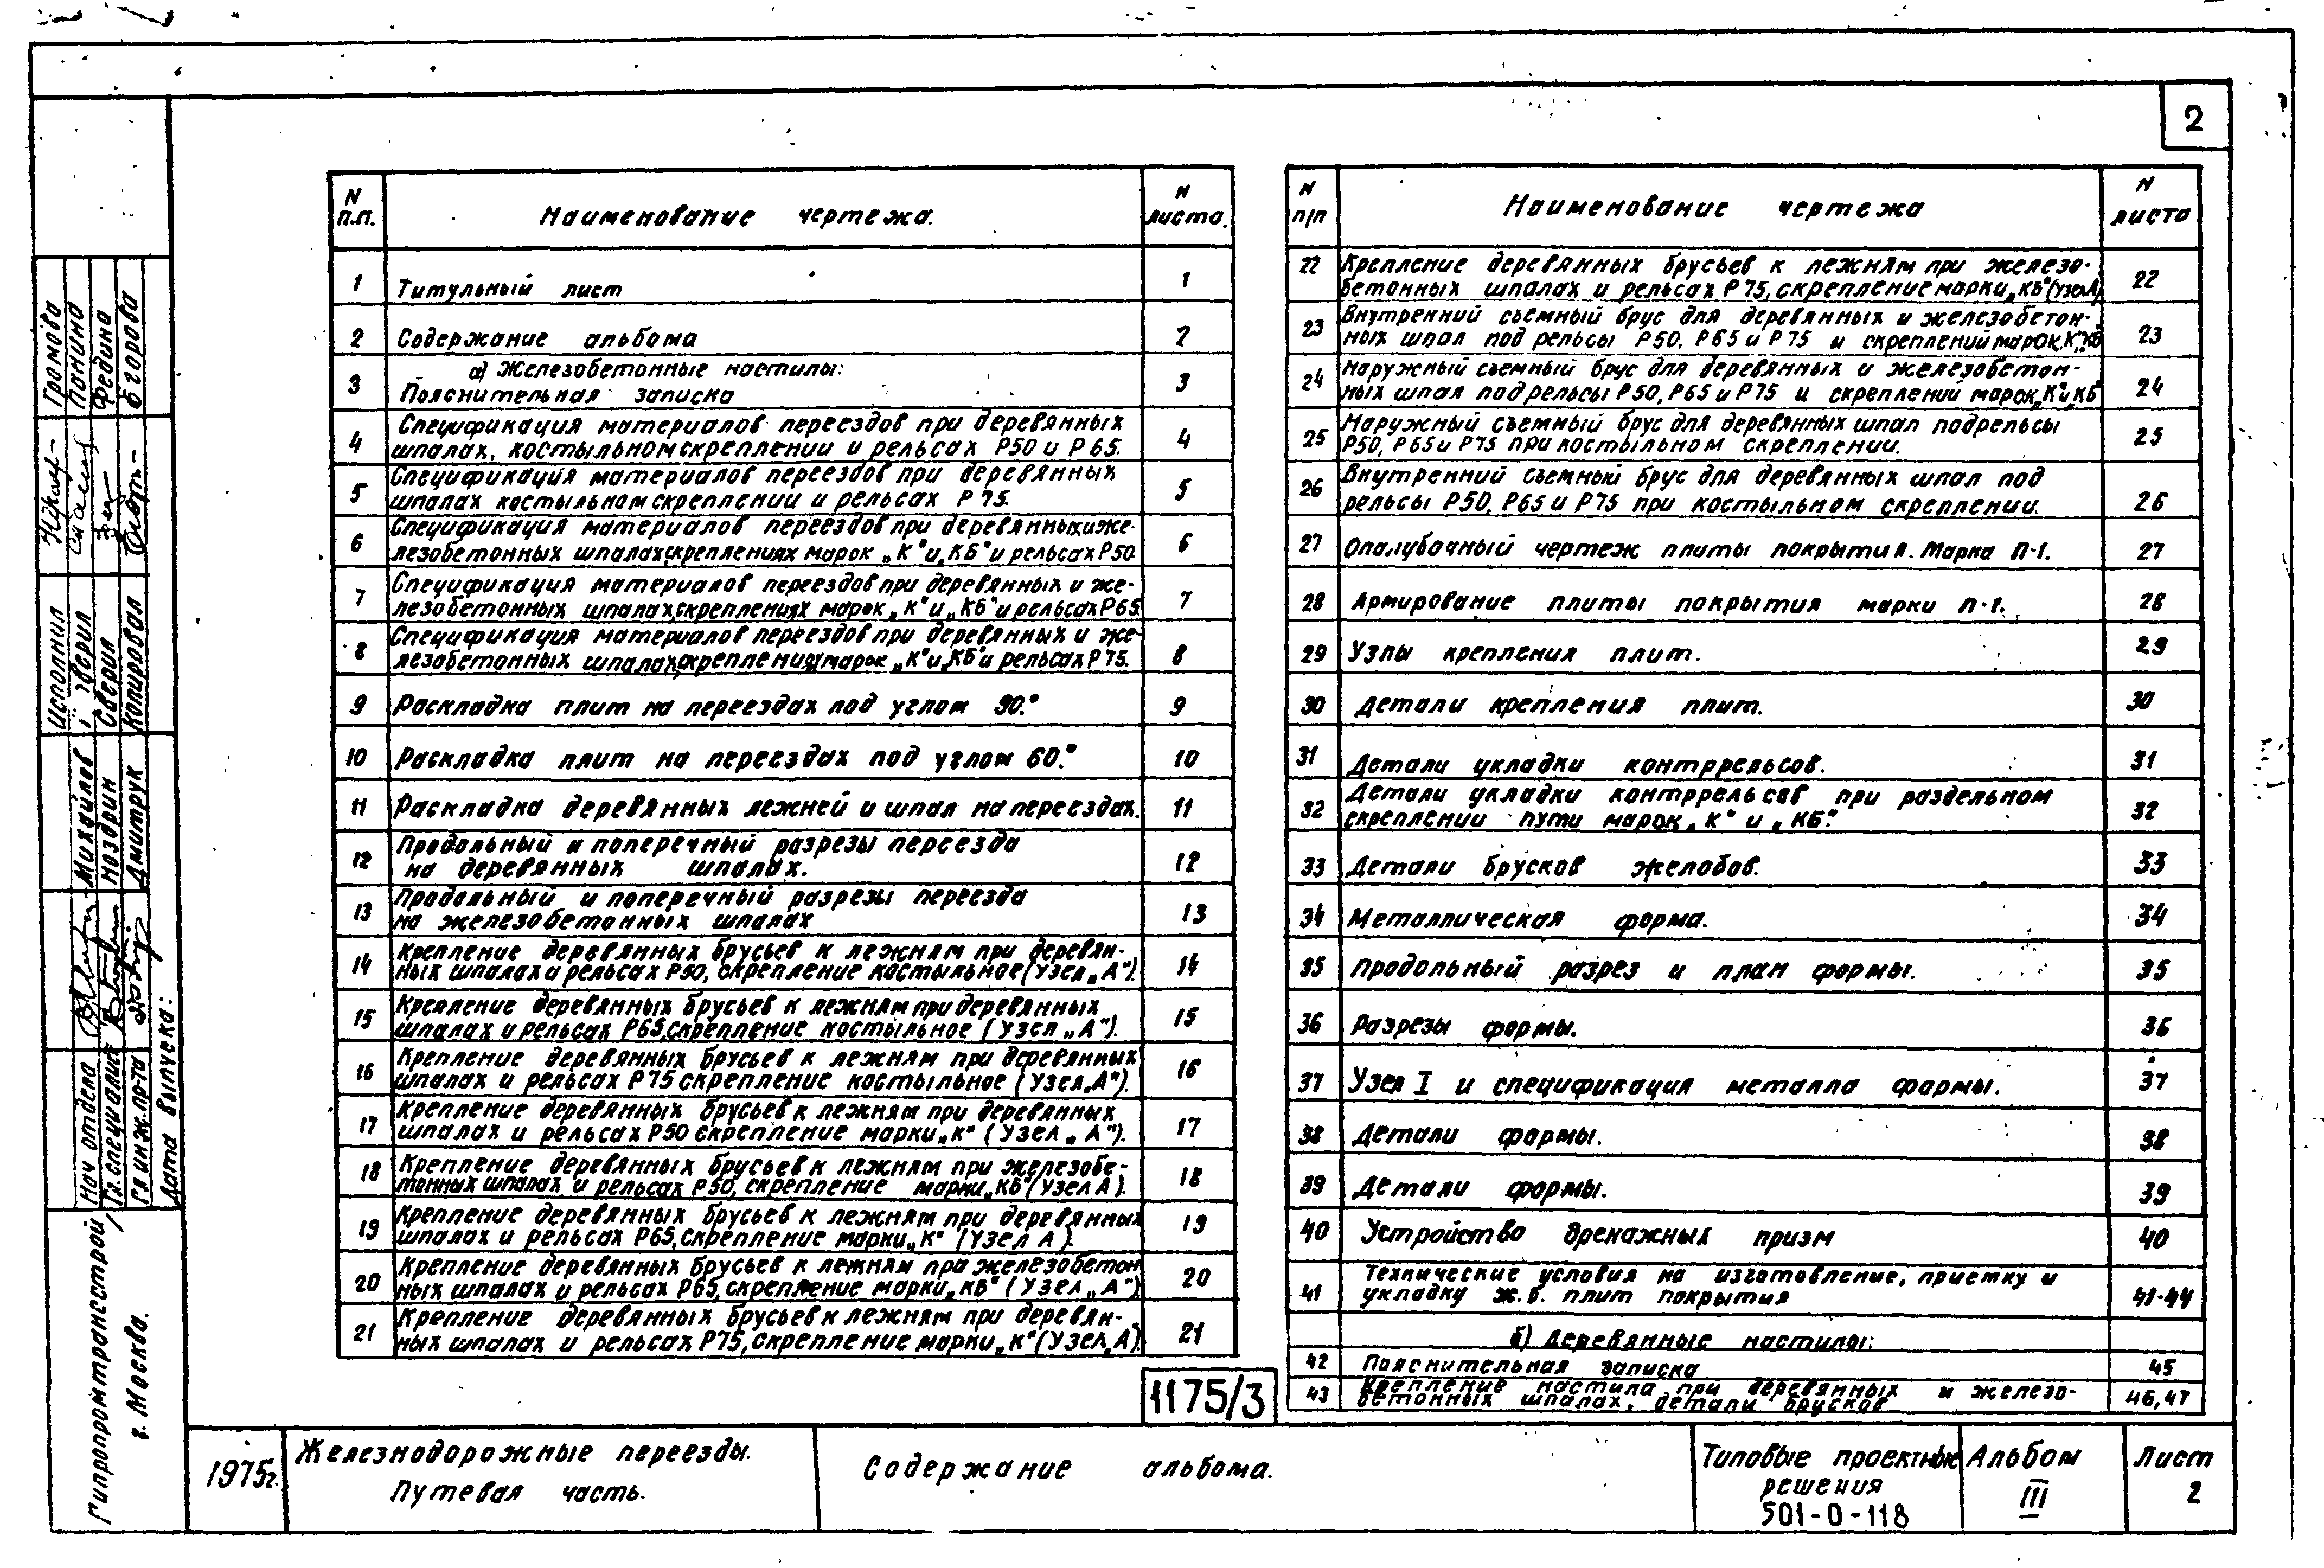 2
N п.п.
Наименование чертежа.
N листа.
1 Титульный лист 1
2 Содержание альбома 2
а) Железобетонные настилы:
3 Пояснительная записка 3
4 Спецификация материалов переездов при деревянных
шпалах, костыльном скреплении и рельсах Р50 и Р65. 4
5 Спецификация материалов переездов при деревянных
шпалах костыльном скреплении и рельсах Р75. 5
6 Спецификация материалов переездов при деревянных и же-
лезобетонных шпалах, скреплениях марок „К" и „КБ" и рельсах Р50. 6
7 Спецификация материалов переездов при деревянных и же-
лезобетонных шпалах, скреплениях марок „К" и „КБ" и рельсах Р65. 7
8 Спецификация материалов переездов при деревянных и же-
лезобетонных шпалах, скреплениях марок „К" и „КБ" и рельсах Р75. 8
9 Раскладка плит на переездах под углом 90.° 9
10 Раскладка плит на переездах под углом 60.° 10
11 Раскладка деревянных лежней и шпал на переездах. 11
12 Продольный и поперечный разрезы переезда
на деревянных шпалах. 12
13 Продольный и поперечный разрезы переезда
на железобетонных шпалах 13
14 Крепление деревянных брусьев к лежням при деревян-
ных шпалах и рельсах Р50, скрепление костыльное (Узел „А"). 14
15 Крепление деревянных брусьев к лежням при деревянных
шпалах и рельсах Р65, скрепление костыльное (Узел „А"). 15
16 Крепление деревянных брусьев к лежням при деревянных
шпалах и рельсах Р75 скрепление костыльное (Узел „А"). 16
17 Крепление деревянных брусьев к лежням при деревянных
шпалах и рельсах Р50 скрепление марки „К" (Узел „А"). 17
18 Крепление деревянных брусьев к лежням при железобе-
тонных шпалах и рельсах Р50, скрепление марки „КБ" (Узел А). 18
19 Крепление деревянных брусьев к лежням при деревянных
шпалах и рельсах Р65, скрепление марки „К" (Узел А). 19
20 Крепление деревянных брусьев к лежням при железобетон
ных шпалах и рельсах Р65, скрепление марки „КБ" (Узел „А"). 20
21 Крепление деревянных брусьев к лежням при деревян-
ных шпалах и рельсах Р75, скрепление марки „К" (Узел „А"). 21
N п/п
Наименование чертежа
N листа
22 Крепление деревянных брусьев к лежням при железо-
бетонных шпалах и рельсах Р75, скрепление марки „КБ" (Узел А) 22
23 Внутренний съемный брус для деревянных и железобетон-
ных шпал под рельсы Р50, Р65 и Р75 и скреплений марок „К", „КБ 23
24 Наружный съемный брус для деревянных и железобетон-
ных шпал под рельсы Р50, Р65 и Р75 и скреплений марок „К" и „КБ 24
25 Наружный съемный брус для деревянных шпал под рельсы
Р50, Р65 и Р75 при костыльном скреплении. 25
26 Внутренний съемный брус для деревянных шпал под
рельсы Р50, Р65 и Р75 при костыльном скреплении. 26
27 Опалубочный чертеж плиты покрытия. Марка П-1. 27
28 Армирование плиты покрытия марки П-1. 28
29 Узлы крепления плит. 29
30 Детали крепления плит. 30
31 Детали укладки контррельсов. 31
32 Детали укладки контррельсов при раздельном
скреплении пути марок „К" и „КБ". 32
33 Детали брусков желобов. 33
34 Металлическая форма. 34
35 Продольный разрез и план формы. 35
36 Разрезы формы. 36
37 Узел I и спецификация металла формы. 37
38 Детали формы. 38
39 Детали формы. 39
40 Устройство дренажных призм 40
41 Технические условия на изготовление, приемку и
укладку ж.б. плит покрытия 41-44
б) Деревянные настилы:
42 Пояснительная записка 45
43 Крепление настила при деревянных и железо-
бетонных шпалах, детали брусков 46,47
1175/3
1975г.
Железнодорожные переезды.
Путевая часть.
Содержание альбома.
Типовые проектные
решения
501-0-118
Альбом
III
Лист
2
Гипропромтрансстрой
г. Москва.
Нач отдела Михайлов
Гл. специалист Ноздрин
Гл. инж. пр-та Дмитрук
Дата выпуска:
Исполнил Громова
Панина
Сверил Федина
Копировал Егорова